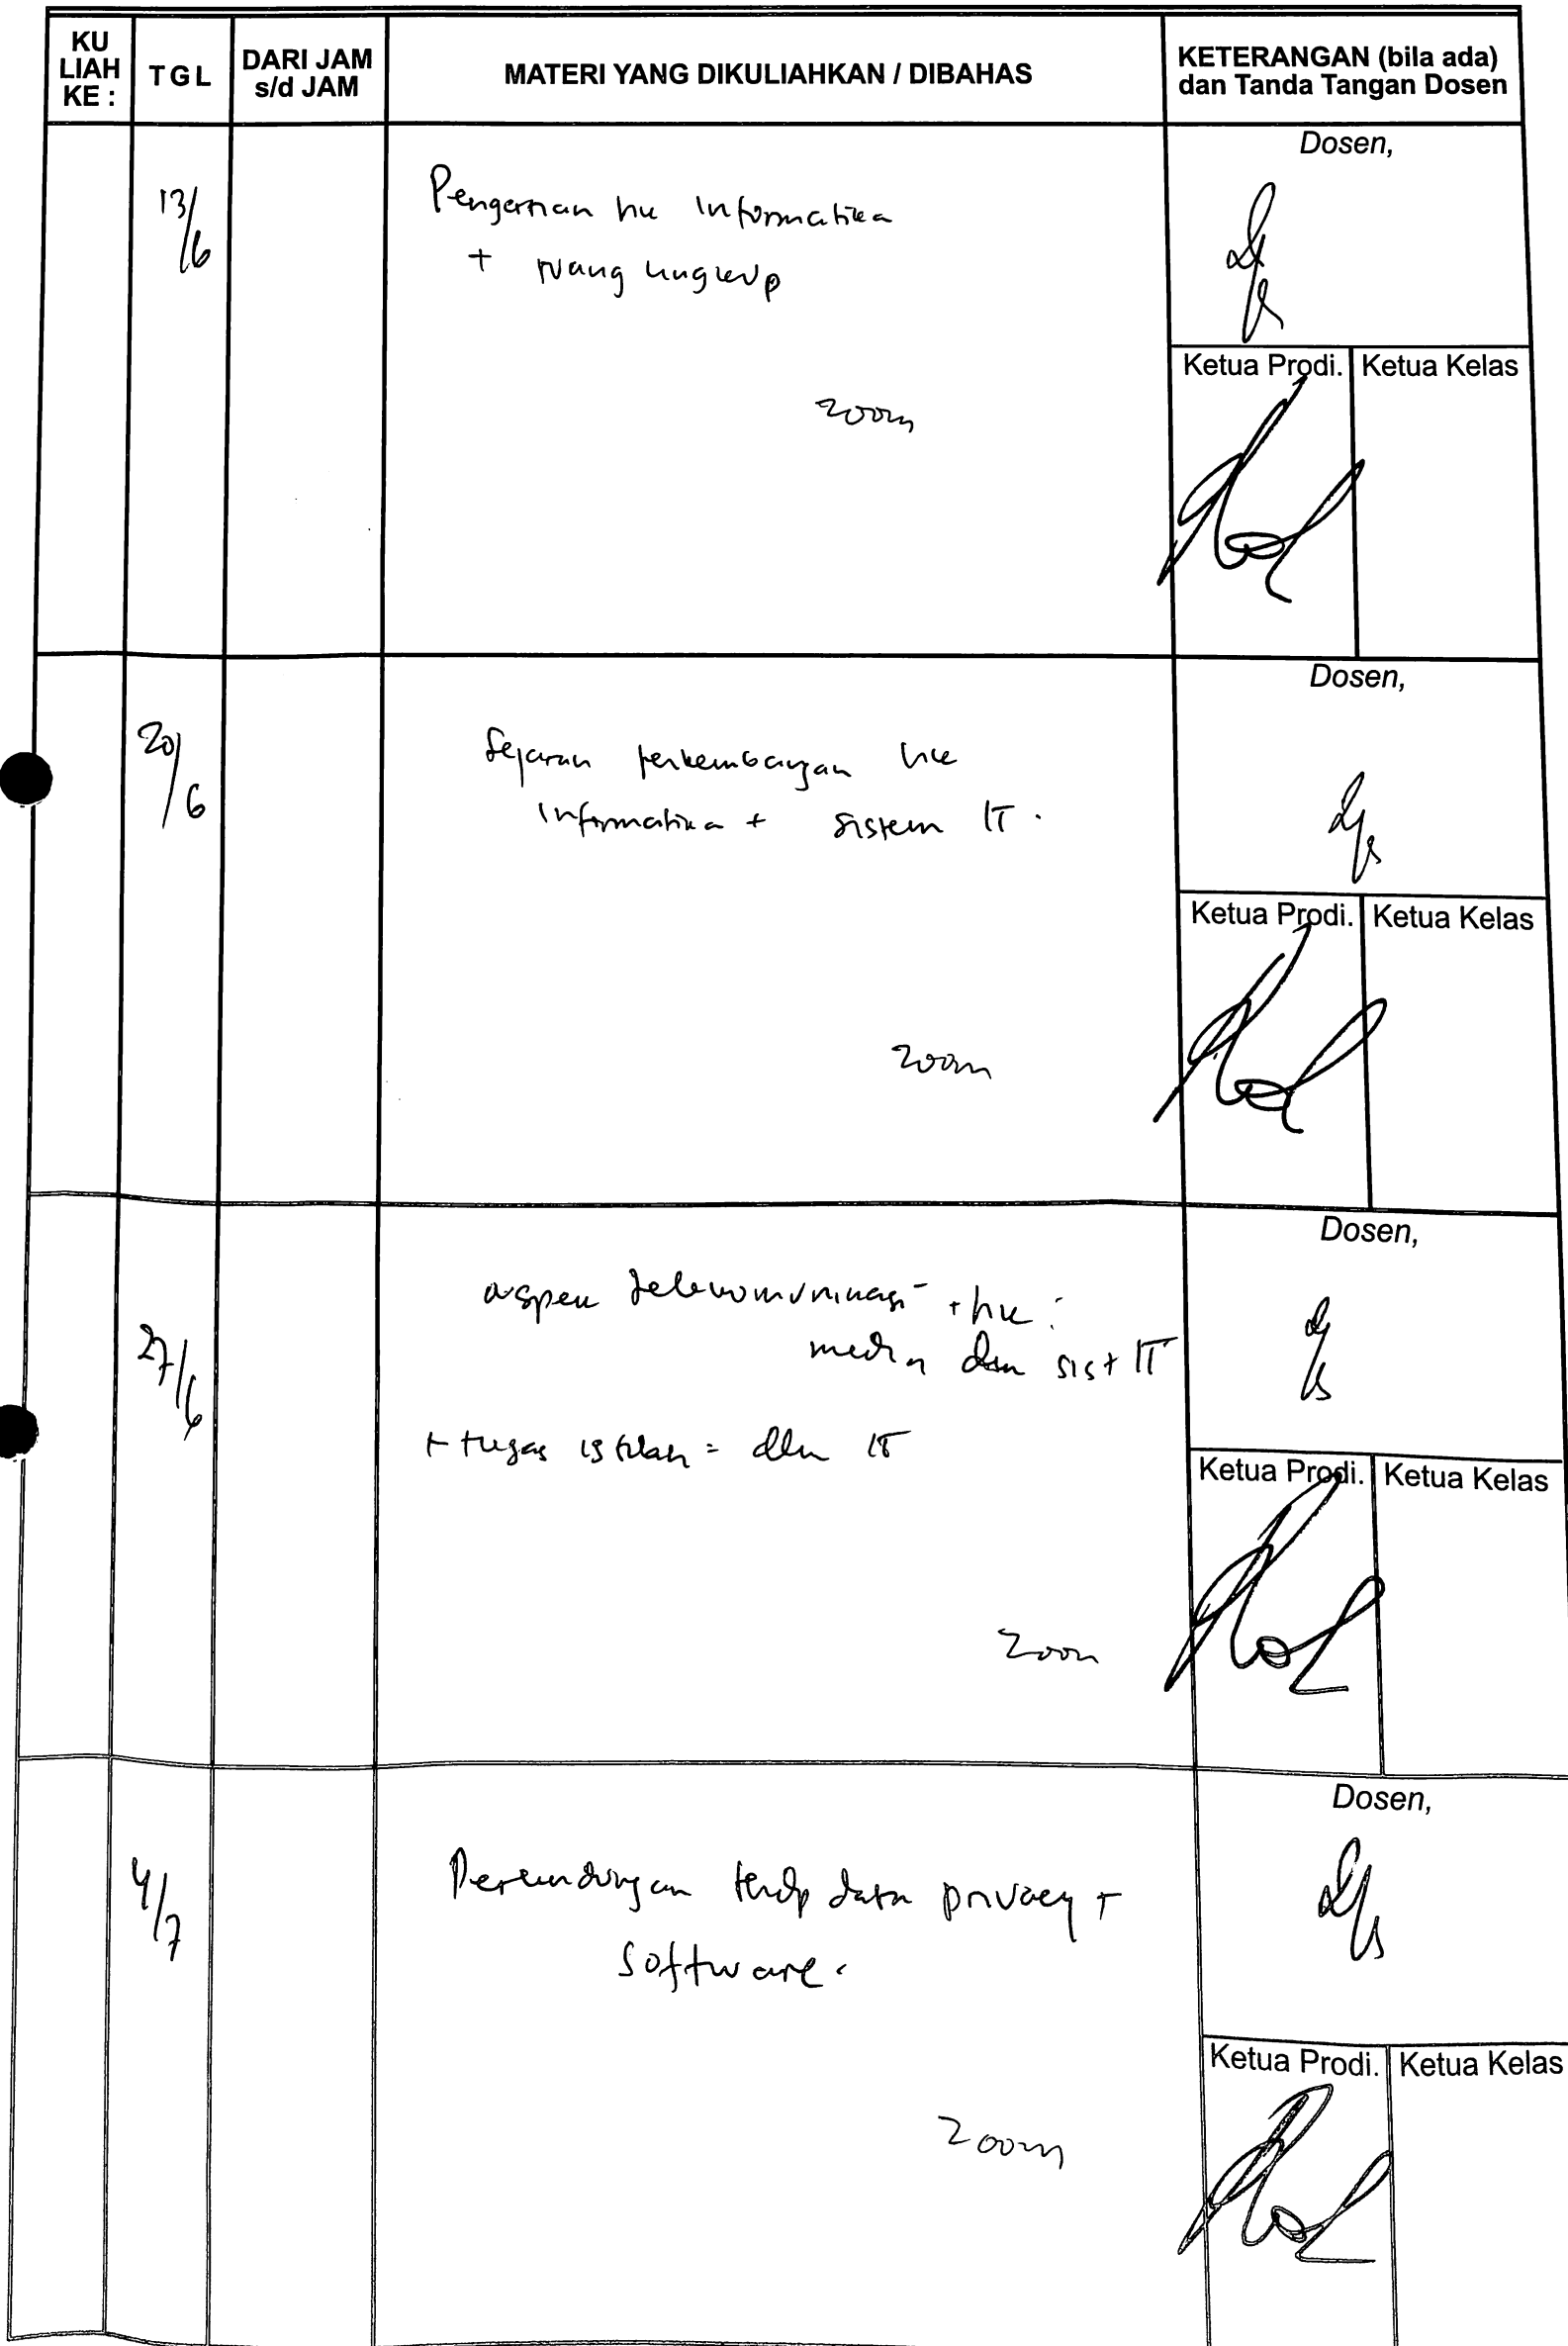 KU
LIAH
KE :
T G L
DARI JAM
s/d JAM
MATERI YANG DIKULIAHKAN / DIBAHAS
KETERANGAN (bila ada)
dan Tanda Tangan Dosen
Dosen,
13/6
Pengertian hk Informatika
+ ruang lingkup
Ketua Prodi.
Ketua Kelas
zoom
Dosen,
20/6
Sejarah perkembangan hk
Informatika + sistem IT.
Ketua Prodi.
Ketua Kelas
zoom
Dosen,
27/6
aspek telekomunikasi + hk :
media dan sist IT
+ tugas istilah = dlm IT
Ketua Prodi.
Ketua Kelas
zoom
Dosen,
4/7
Perlindungan thdp data privacy +
software.
Ketua Prodi.
Ketua Kelas
zoom